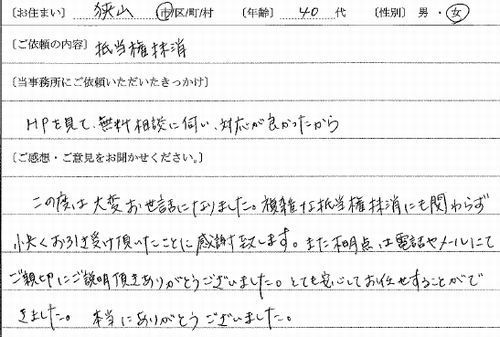 〔お住まい〕 狭山 市/区/町/村 〔年齢〕 40 代 〔性別〕 男・女
〔ご依頼の内容〕 抵当権抹消
〔当事務所にご依頼いただいたきっかけ〕
HPを見て、無料相談に伺い、対応が良かったから
〔ご感想・ご意見をお聞かせください。〕
この度は大変お世話になりました。複雑な抵当権抹消にも関わらず
快くお引き受け頂いたことに感謝致します。また不明点は電話やメールにて
ご親切にご説明頂きありがとうございました。とても安心してお任せすることがで
きました。 本当にありがとうございました。